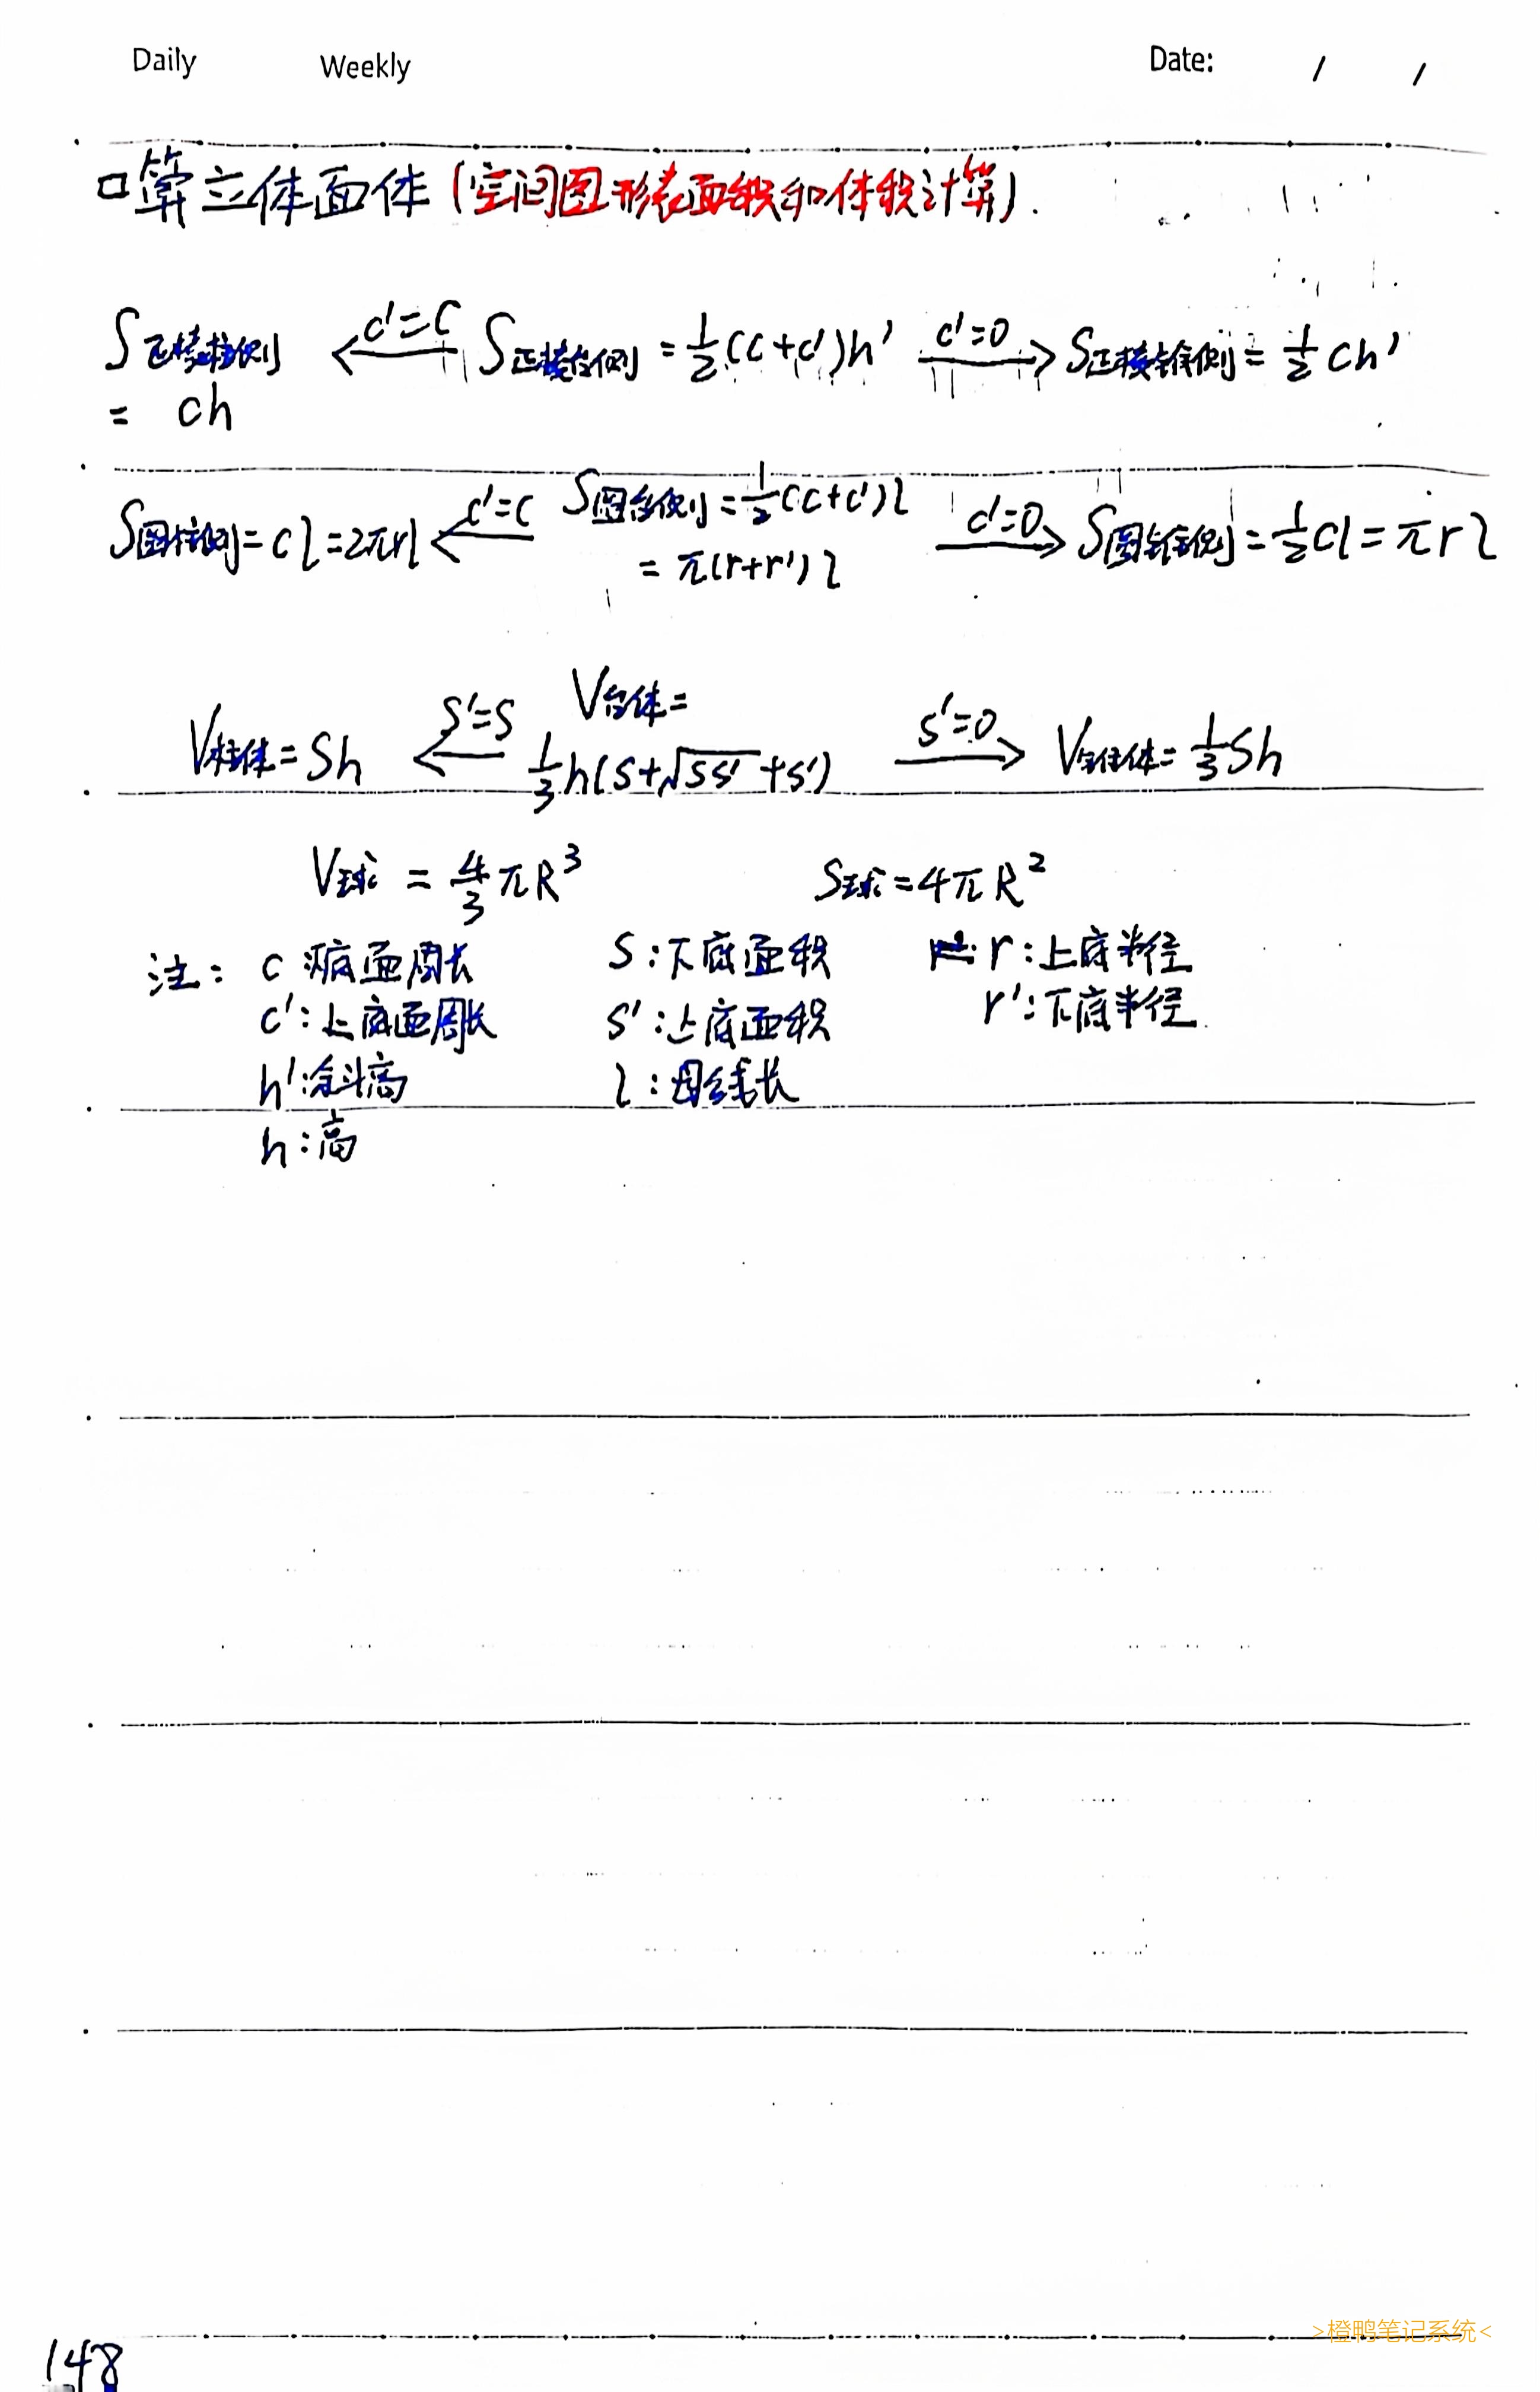 Daily Weekly Date: / /
口算立体面体(空间图形表面积和体积计算).
S正棱柱侧 = ch ←c'=c S正棱台侧 = 1/2(c+c')h' c'=0→ S正棱锥侧 = 1/2 ch'
S圆柱侧 = cl = 2πrl ←c'=c S圆台侧 = 1/2(c+c')l = π(r+r')l c'=0→ S圆锥侧 = 1/2cl = πrl
V柱体 = Sh ←S'=S V台体 = 1/3h(S+√SS'+S') S'=0→ V锥体 = 1/3Sh
V球 = 4/3πR³ S球 = 4πR²
注: c 底面周长 S:下底面积 r:上底半径
c':上底面周长 S':上底面积 r':下底半径
h':斜高 l:母线长
h:高
148
>橙鸭笔记系统<